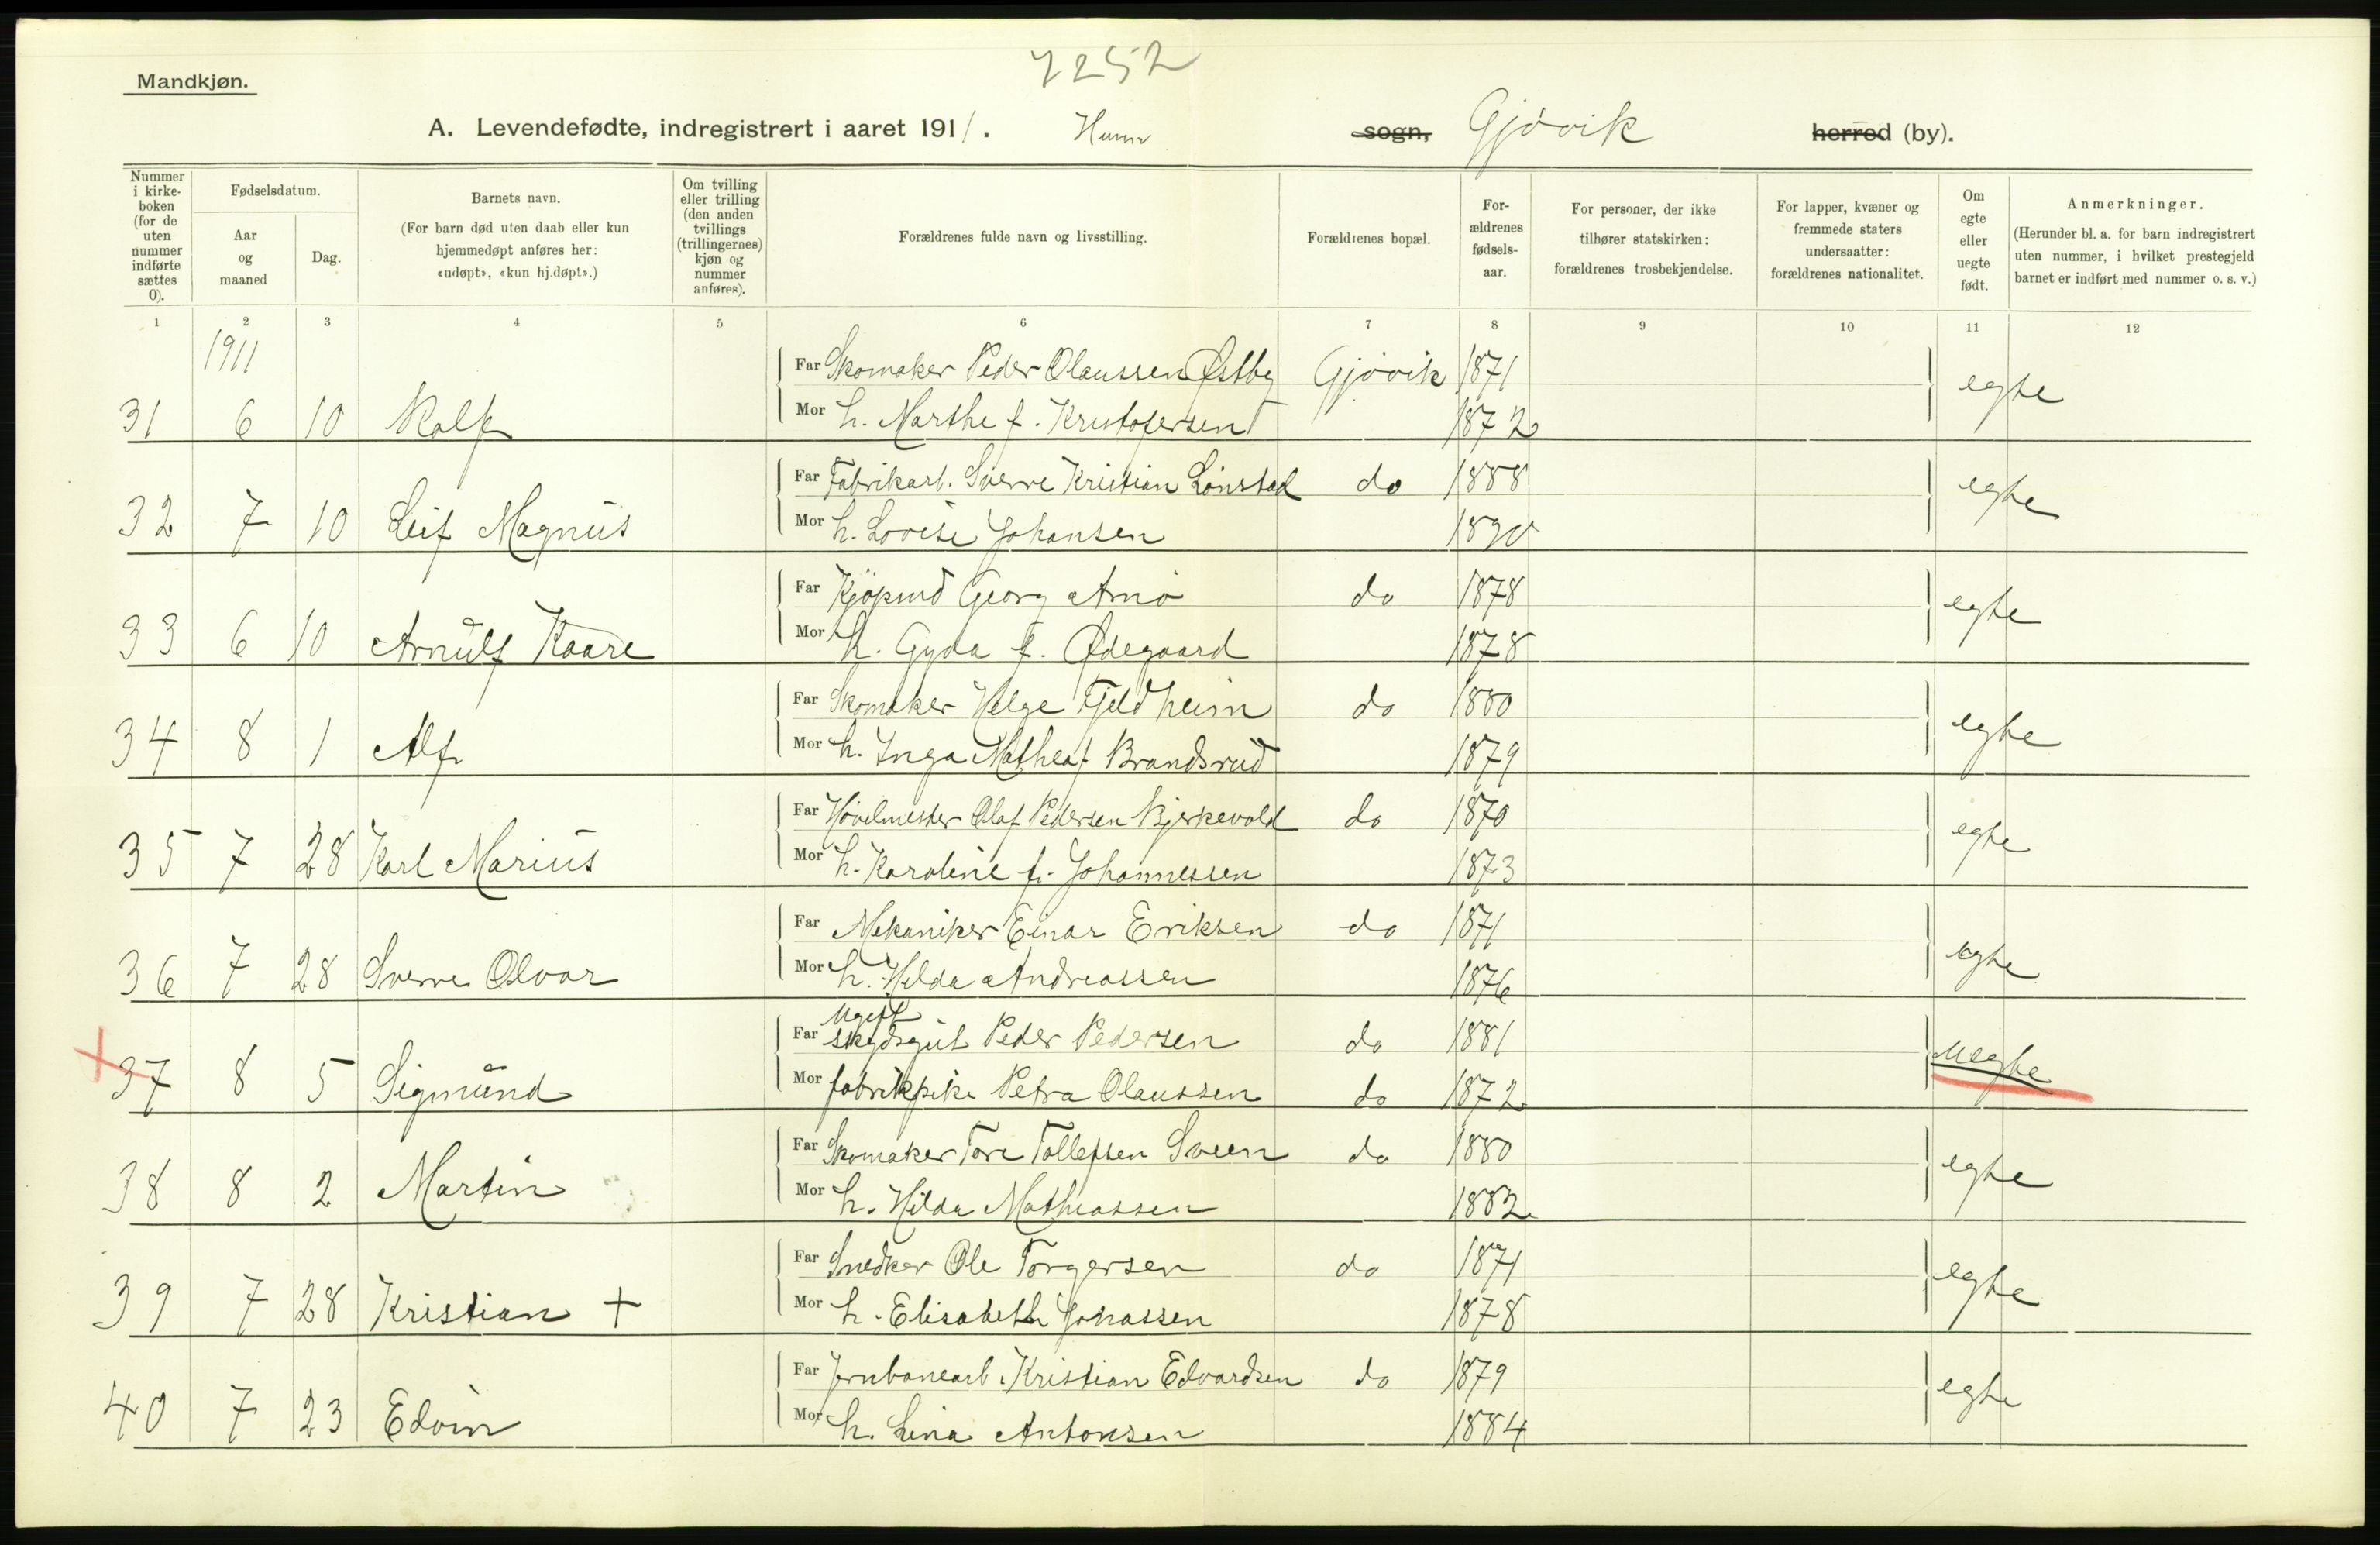 7252
Mandkjøn.
A. Levendefødte, indregistrert i aaret 1911. Hunn sogn, Gjøvik herred (by).
Nummer i kirkeboken (for de uten nummer indførte sættes 0).
Fødselsdatum.
Aar og maaned
Dag.
Barnets navn.
(For barn død uten daab eller kun hjemmedøpt anføres her: «udøpt», «kun hj.døpt».)
Om tvilling eller trilling (den anden tvillings (trillingernes) kjøn og nummer anføres).
Forældrenes fulde navn og livsstilling.
Forældrenes bopæl.
Forældrenes fødselsaar.
For personer, der ikke tilhører statskirken: forældrenes trosbekjendelse.
For lapper, kvæner og fremmede staters undersaatter: forældrenes nationalitet.
Om egte eller uegte født.
Anmerkninger.
(Herunder bl. a. for barn indregistrert uten nummer, i hvilket prestegjeld barnet er indført med nummer o. s. v.)
1 2 3 4 5 6 7 8 9 10 11 12
1911
Far Skomaker Peder Olaussen Østby Gjøvik 1871 egte
31 6 10 Rolf Mor h. Marthe f. Kristofersen 1872
Far Fabrikarb. Sverre Kristian Lønstad do 1888 egte
32 7 10 Leif Magnus Mor h. Lovise Johansen 1890
Far Kjøpmd Georg Arnø do 1878 egte
33 6 10 Arnulf Kaare Mor h. Gyda f. Ødegaard 1878
Far Skomaker Helge Fjeldheim do 1880 egte
34 8 1 Alf Mor h. Inga Mathea f Brandsrud 1879
Far Høvelmester Olaf Pedersen Bjerkevold do 1870 egte
35 7 28 Karl Marius Mor h. Karoline f. Johannessen 1873
Far Mekaniker Einar Eriksen do 1871 egte
36 7 28 Sverre Olvar Mor h. Hilda Andreassen 1876
Ugift
Far skydsgut Peder Pedersen do 1881 uegte
37 8 5 Sigmund Mor fabrikpike Petra Olaussen do 1872
Far Skomaker Tore Tollefsen Sveen do 1880 egte
38 8 2 Martin Mor h. Hilda Mathiassen 1882
Far Snedker Ole Torgersen do 1871 egte
39 7 28 Kristian + Mor h. Elisabeth Jonassen 1878
Far Jernbanearb. Kristian Edvardsen do 1879 egte
40 7 23 Edvin Mor h. Lina Antonsen 1884